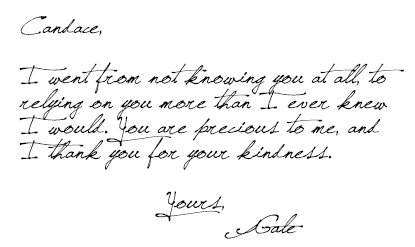 Candace,
I went from not knowing you at all, to
relying on you more than I ever knew
I would. You are precious to me, and
I thank you for your kindness.
Yours,
Gale